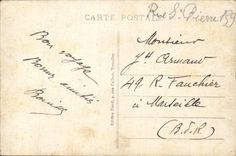 CARTE POSTALE
Rue St Pierre
Bon voyage
Bonne amitié
Monsieur
Armand
49. R. Fauchier
à Marseille
(B.d.R)